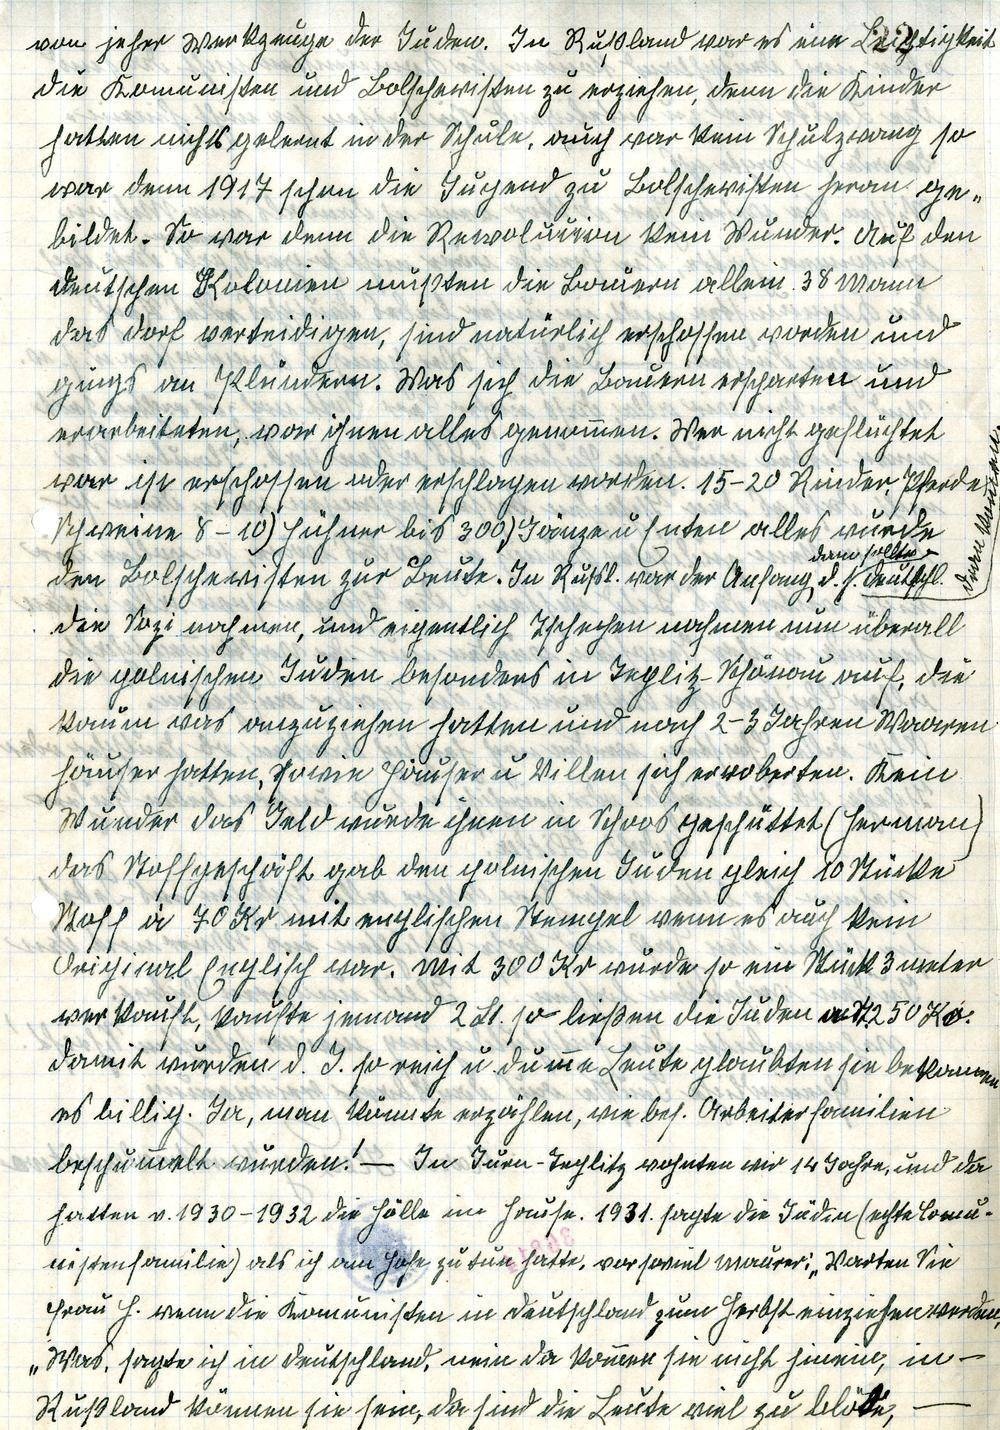 von jeher Werkzeuge der Juden. In Rußland war es eine Leichtigkeit
22
die Komunisten und Bolschewisten zu erziehen, denn die Kinder
hatten nichts gelernt in der Schule, auch war kein Schulzwang so
war denn 1917 schon die Jugend zu Bolschewisten heran ge„
bildet. So war denn die Rewolution kein Wunder. Auf den
deutschen Kolonien mußten die Bauern allein 38 Mann
das dorf verteidigen, sind natürlich erschossen worden und
gings an Plündern. Was sich die Bauern ersparten und
erarbeiteten, war ihnen alles genom̄en. Wer nicht geflüchtet
war ist erschossen oder erschlagen worden. 15-20 Rinder, Pferde
Schweine 8-10) Hühner bis 300) Gänze u Enten alles wurde
dann sollte
den Bolschewisten zur Beute. In Rußl. war der Anfang, d. h. deutschl.
daran kommen.
die Sozi nahmen, und eigentlich Tschechen nahmen nun überall
die polnischen Juden besonders in Teplitz-Schönau auf, die
kaum was anzuziehen hatten und nach 2-3 Jahren Waaren
häuser hatten, sowie Häuser u Villen sich erwoberten. Kein
Wunder das Geld wurde ihnen in Schoos geschüttet (Herman)
das Stoffgeschäft gab den polnischen Juden gleich 10 Stücke
Stoff à 70 Kr mit englischen Stempel wenn es auch kein
Original Englisch war. Mit 300 Kr wurde so ein Stück 3 meter
verkauft, kaufte jemand 2 St. so ließen die Juden 250 Kč.
damit wurden d. J. so reich u. dum̄e Leute glaubten sie bekommen
es billig. Ja, man könnte erzählen, wie bes. Arbeiterfamilien
beschum̄elt wurden! — In Turn-Teplitz wohnten wir 14 Jahre, und da
hatten v. 1930-1932 die Hölle im Hause. 1931. sagte die Jüdin (echte Comu-
nistenfamilie) als ich am Hofe zu tun hatte, vor soviel Maurer: „Warten Sie
Frau H. wenn die Komunisten in deutschland zum Herbst einziehen werden,
„Was, sagte ich in deutschland, nein da kom̄en sie nicht hinein, in —
Rußland können sie sein, da sind die Leute viel zu blöde, —